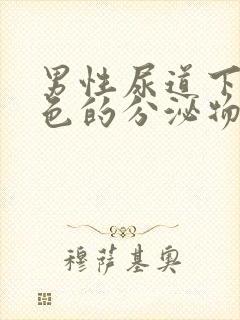 男性尿道下
色的分泌物
穆萨基奥